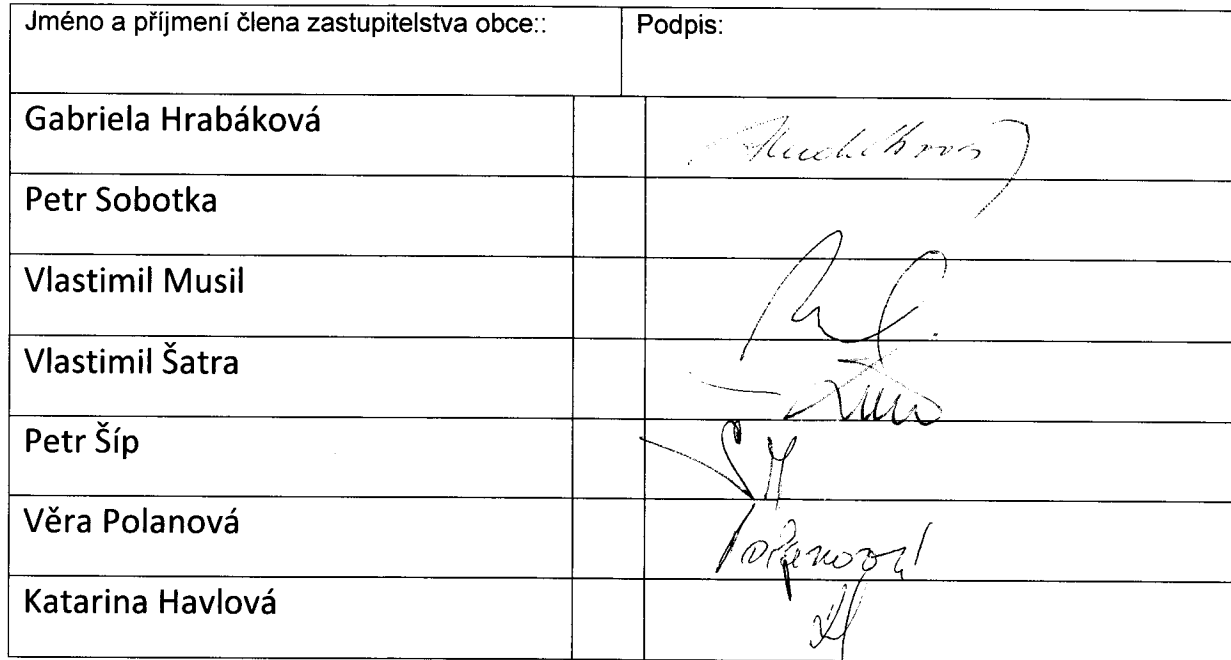 Jméno a příjmení člena zastupitelstva obce:: Podpis:
Gabriela Hrabáková
Petr Sobotka
Vlastimil Musil
Vlastimil Šatra
Petr Šíp
Věra Polanová
Katarina Havlová